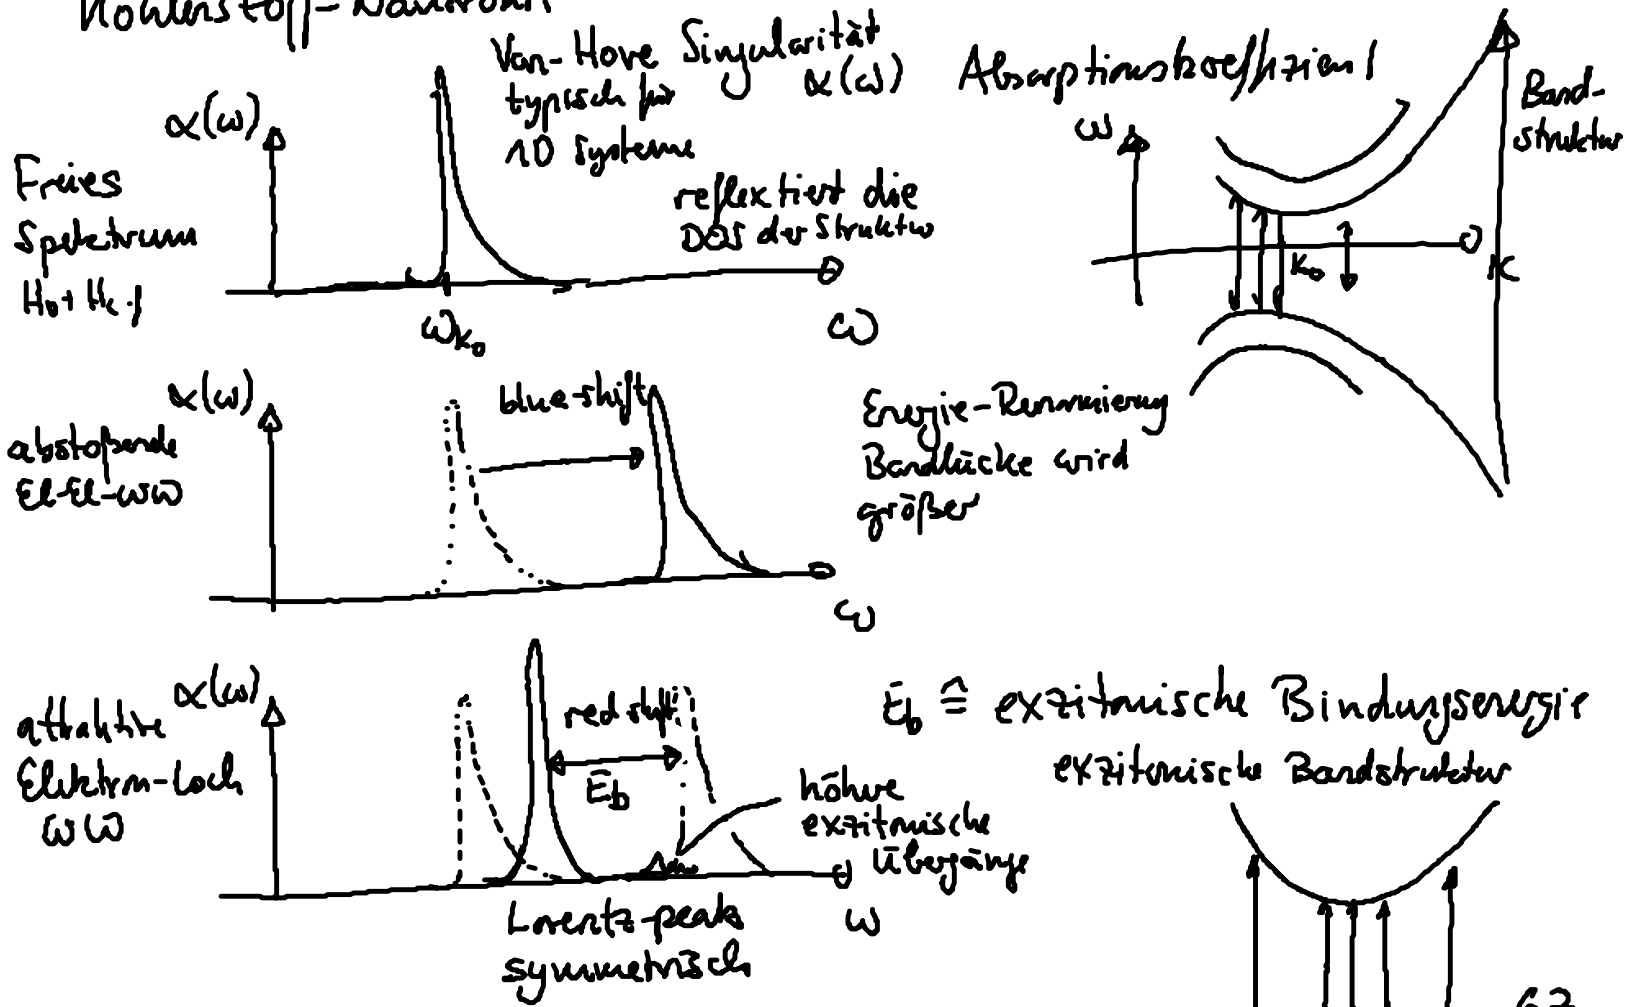 Kohlenstoff-Nanorohr
Van-Hove Singularität
typisch für
1D Systeme
α(ω)
Absorptionskoeffizient
Band-
struktur
α(ω)
ω
k
k₀
Freies
Spektrum
H₀+H_c.f
reflextiert die
DOS der Struktur
ω_k₀
ω
α(ω)
blue-shift
abstoßende
El-El-WW
Energie-Renormierung
Bandlücke wird
größer
ω
α(ω)
attraktive
Elektron-Loch
WW
red shift
E_b
höhere
exzitonische
Übergänge
ω
Lorentz-peak
symmetrisch
E_b ≙ exzitonische Bindungsenergie
exzitonische Bandstruktur